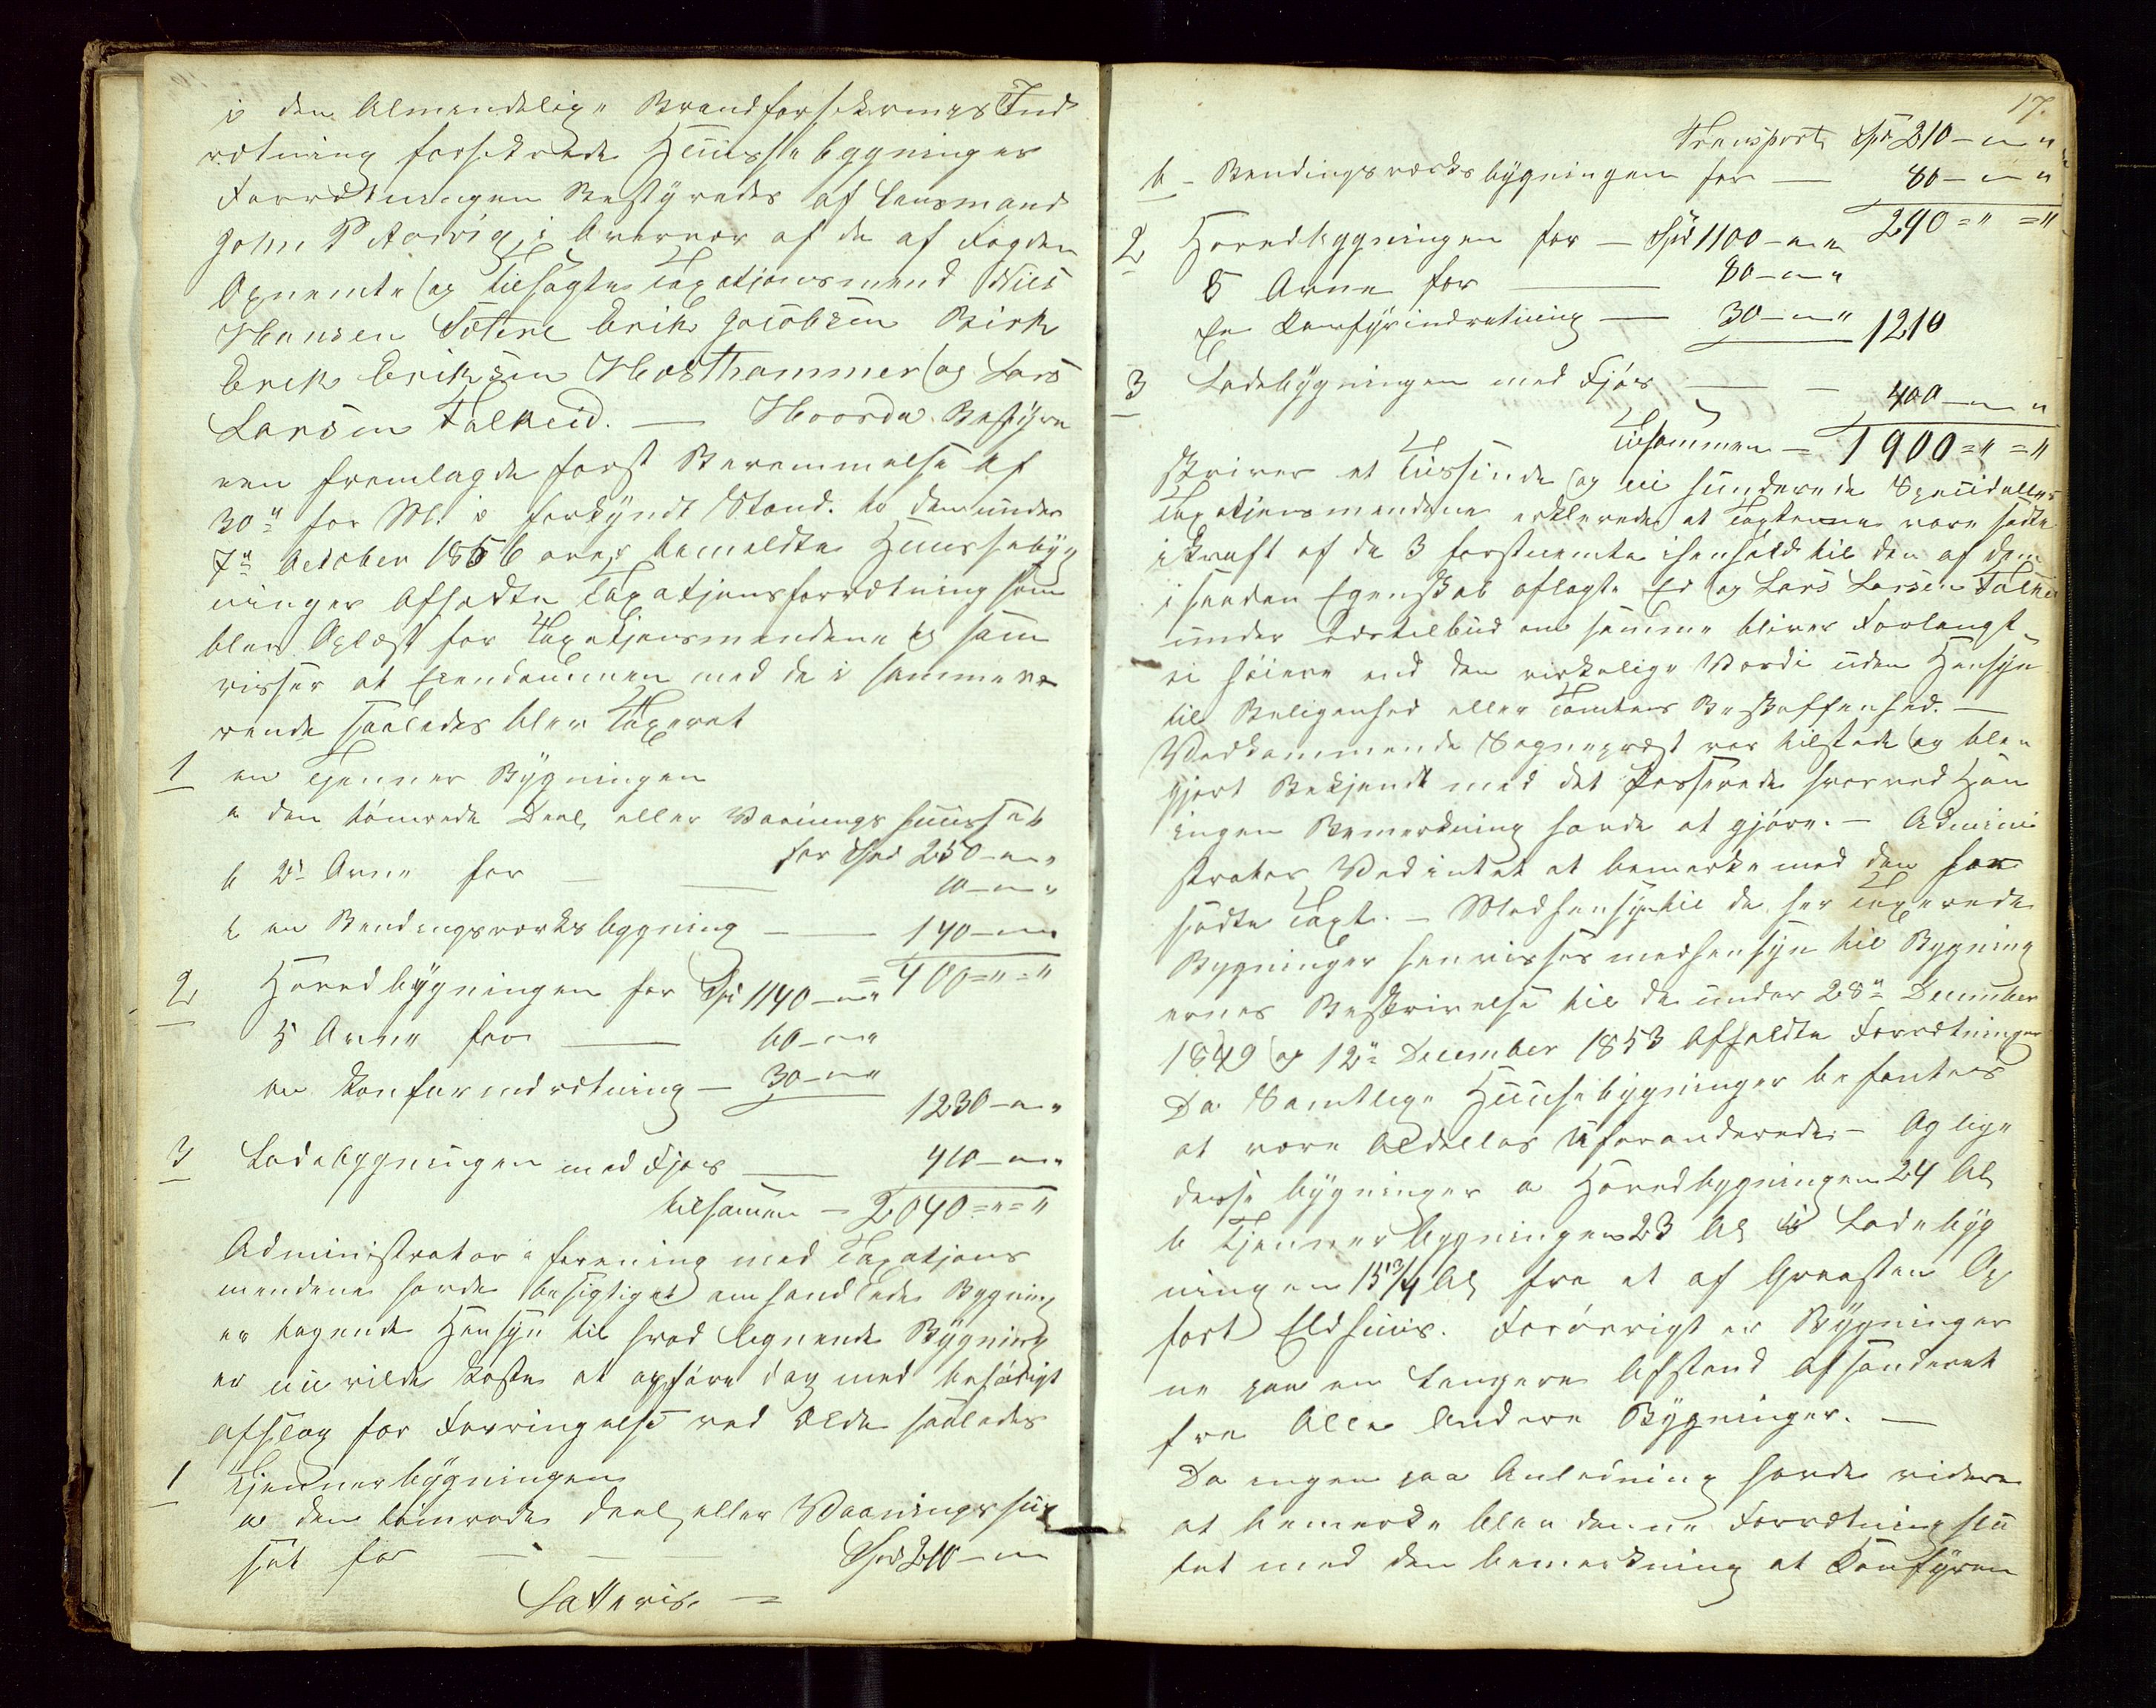 i den Almindelige Brandforsikrings Ind
retning forsikrede Huusebygninger
Forretningen Bestyredes af Lensmand
John P Aarvig, i Overvær af de af Fogden
Opnemte og tilsagte Taxationsmend Nils
Hansen Sætere Erik Jacobsen Birk
Erik Eriksen Hosthammer og Lars
Larsen Talkeid. — Hvorda Bestyre
ren fremlagde først Berammelse af
30" for M. i forkyndt Stand. to den under
7" October 1856 over bemeldte Huusebyg
ninger Afholdte Taxationsforretning som
blev Oplest for Taxationsmendene og som
viser at Eiendommen med de i samme væ
rende saaledes blev Taxeret
1 en Tjenner Bygningen
a den tømrede Deel, eller Vaaningshuuset
for Spd 250 - " "
b 2 Arne for — — 10 - " "
c en Bendingsværks bygning — 140 - " "
= 400 = " = "
2 Hovedbygningen for Spd 1140 - " "
5 Arne for — 60 - " "
en Komfur indretning — 30 - " "
1230 - " "
3 Ladebygningen med Fjøs — 410 - " "
tilsamen — 2040 = " = "
Administrator i forening med Taxations
mendene havde besigtiget omhandlede Bygning
er tagende Hensyn til hvad lignende Bygning
er nu vilde koste at opføre dog med behørigt
afslag for Forringelse ved Elde saaledes
1 Tjennerbygningen
a den tømrede Deel, eller Vaaningshuu
set for — — Spd 210 - "
Latteris =
17.
Transport Spd 210 - " "
b - Bendingsværksbygningen for — 80 - " "
290 = " = "
2 Hovedbygningen for — Spd 1100 - " "
5 Arne for — 80 - " "
En Komfyrindretning — 30 - " " 1210
3 Ladebygningen med Fjøs — — 400 - " "
Tilsammen — 1900 = " = "
skriver et Tussinde og ni hunderede Speciedaller
Taxationsmendene erklerede at Taxterne vare sadte
i kraft af de 3 førstnemte i henhold til den af dem
i saadan Egenskab aflagte Ed og Lars Larsen Talkei
under Edstilbud om samme bliver Forlangt
ei høiere end den virkelige Verdi uden Hensyn
til Beligenhed eller Tomtens Beskaffenhed. —
Vedkommende Sognepræst var tilstede og blev
gjort Bekjendt med det Passerede hvorved Han
ingen Bemerkning havde at gjøre. — Admini
strator Ved intet at bemerke med den saa
sadte Taxt. — Med hensyn til de her Taxerede
Bygninger henvisses med hensyn til Bygning
ernes Beskrivelse til de under 28" December
1849 og 12" December 1853 Afholdte Forretninger
Da Samtlige Huusebygninger befantes
at vere Aldelles Uforanderede. — Og lige
disse bygninger a Hovedbygningen 24 Al
b Tjennerbygningen 23 Al Ladebyg
ningen 15 3/4 Al fra et af Graasten Op
ført Eldhuus. Forøvrigt er Bygninger
ne paa en Lengere Afstand afsonderet
fra Alle Andere Bygninger. —
Da ingen paa Anledning havde videre
at bemerke blev denne Forretning slu
tet med den bemerkning at Komfyren